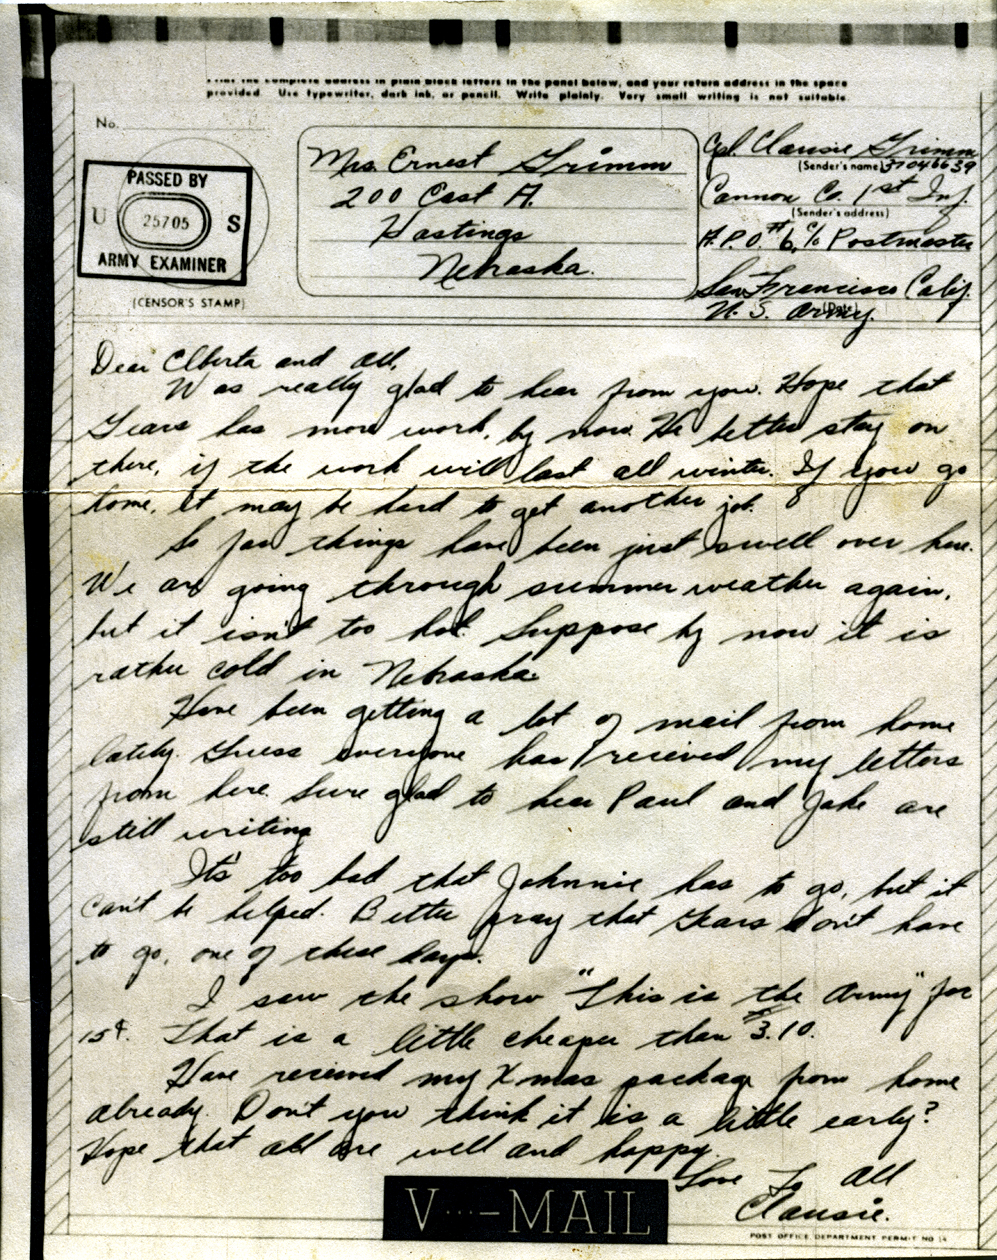 Print the complete address in plain block letters in the panel below, and your return address in the space
provided. Use typewriter, dark ink, or pencil. Write plainly. Very small writing is not suitable.
No.
PASSED BY
U 25705 S
ARMY EXAMINER
(CENSOR'S STAMP)
Mrs. Ernest Grimm
200 East A.
Hastings
Nebraska.
Cpl. Clausie Grimm
(Sender's name) 37046639
Cannon Co. 1st Inf.
(Sender's address)
A.P.O. #6, % Postmaster
San Francisco Calif.
(Date)
U.S. Army.
Dear Elberta and all,
Was really glad to hear from you. Hope that
Gears has more work, by now. He better stay on
there, if the work will last all winter. If you go
home, it may be hard to get another job.
So far things have been just swell over here.
We are going through summer weather again,
but it isn't too hot. Suppose by now it is
rather cold in Nebraska.
Have been getting a lot of mail from home
lately. Guess everyone has received my letters
from here. Sure glad to hear Paul and Jake are
still writing
It's too bad that Johnnie has to go, but it
can't be helped. Better pray that Gears don't have
to go, one of these days.
I saw the show "This is the Army" for
15¢. That is a little cheaper than $3.10.
Have received my Xmas package from home
already. Don't you think it is a little early?
Hope that all are well and happy.
Love To All
Clausie.
V···—MAIL
POST OFFICE DEPARTMENT PERMIT NO 14